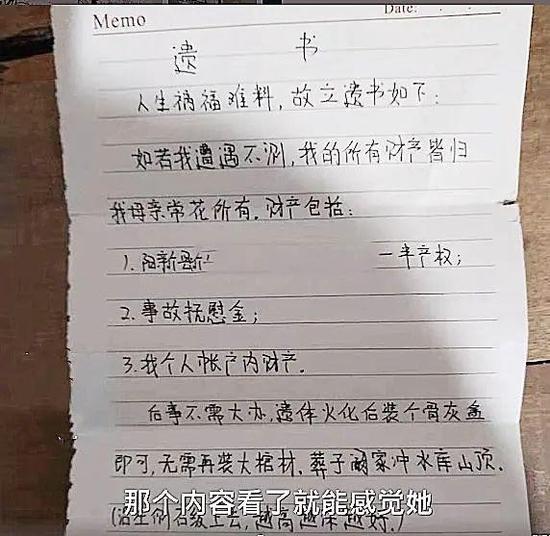 Memo Date:
遗 书
人生祸福难料，故立遗书如下：
如若我遭遇不测，我的所有财产皆归
我母亲常花所有．财产包括：
1. 阳新县 一半产权；
2. 事故抚慰金；
3. 我个人帐户内财产．
后事不需大办，遗体火化后装个骨灰盒
即可，无需再装大棺材．葬于 家冲水库山顶．
那个内容看了就能感觉她
越高越 越好．）